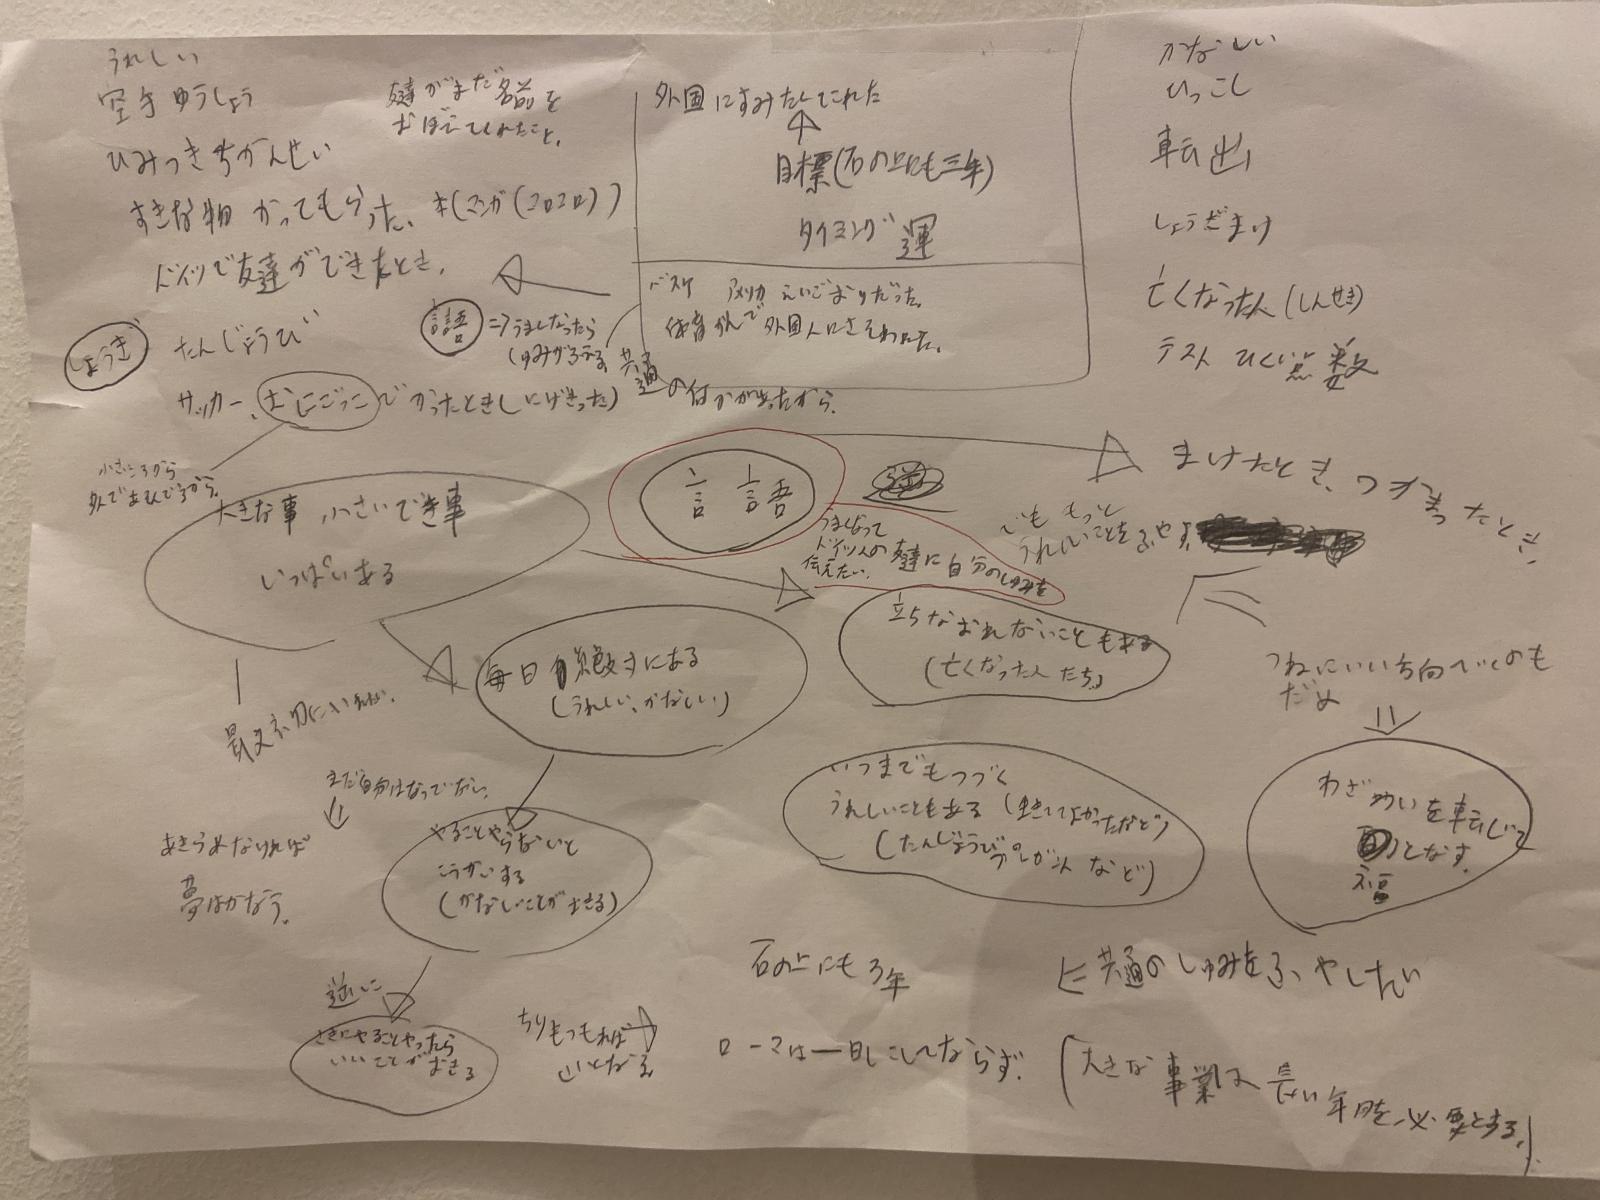 うれしい
空手 ゆうしょう
ひみつきちかんせい
すきな物 かってもらった、本(マンガ(コロコロ))
ドイツで友達ができたとき、
友達がまだ名前を
おぼえてくれたこと、
しょうぎ
たんじょうび
サッカー、おにごっこでかったとき(にげきった)
小さいころから
外であそんでるから、
言語
⇒うまくなったら
しゅみが
共通の何かがあったから、
外国にすみたくてこれた
目標(石の上にも三年)
タイミング 運
バスケ アメリカ えいごまりだった、
体育かんで 外国人にさそわれた、
かなしい
ひっこし
転出
しょうぎまけ
亡くなった人(しんせき)
テスト ひくい点数
まけたとき、つたえ
でも もっと
うれしいことをふやす
言語
うまくなって
ドイツ人の友達に自分のしゅみを
伝えたい、
大きな事 小さいでき事
いっぱいある
最大限に
毎日絶対にある
(うれしい、かなしい)
立ちなおれないこともある
(亡くなった人たち)
つねにいい方向へいくのも
だめ
わざわいを転じて
福となす、
いつまでもつづく
うれしいこともある(生きててよかったなど)
(たんじょうびプレゼントなど)
まだ自分はなってない、
あきらめなければ
夢はかなう、
やることやらないと
こうかいする
(かなしいことがおきる)
逆に
さきにやることやったら
いいことがおきる
ちりもつもれば
山となる
石の上にも3年
⇐共通のしゅみをふやしたい
ローマは一日にしてならず、
(大きな事業は長い年月を必要とする、)